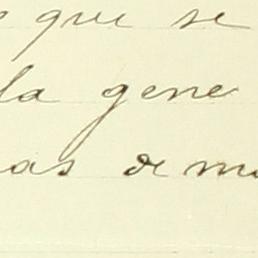 que se
la gene
as de m